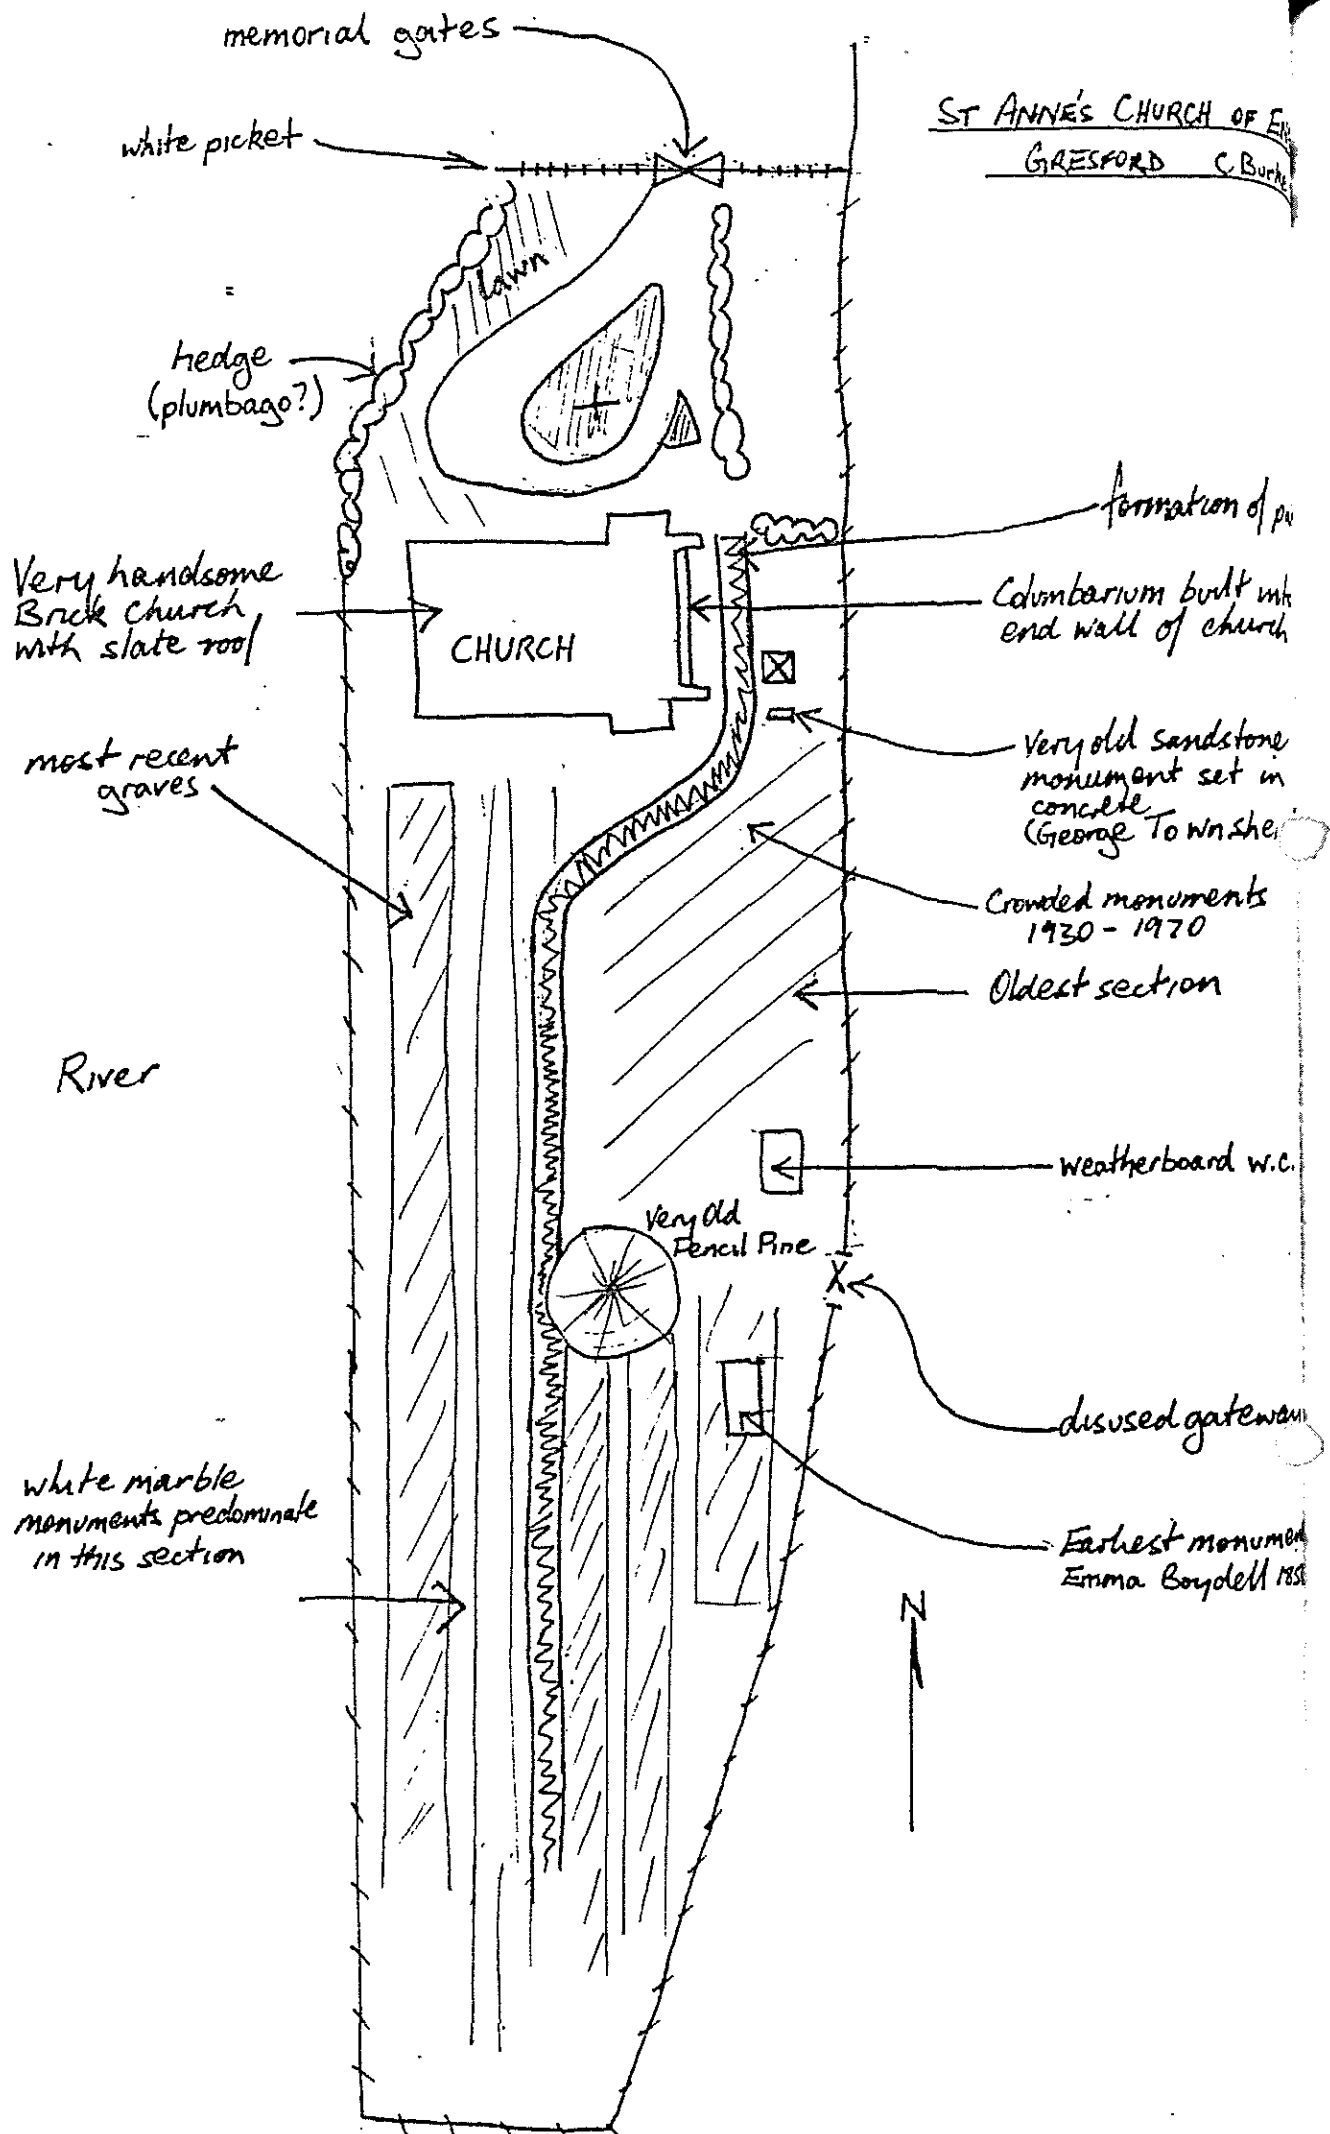 memorial gates
ST ANNE'S CHURCH OF
GRESFORD C Burke
white picket
lawn
hedge
(plumbago?)
formation of
Very handsome
Brick church
with slate roof
CHURCH
Columbarium built
end wall of church
most recent
graves
Very old sandstone
monument set in
concrete
(George
Crowded monuments
1930 - 1970
Oldest section
River
weatherboard w.c.
Very Old
Pencil Pine
X
disused
white marble
monuments predominate
in this section
Earliest
Emma Boydell
N